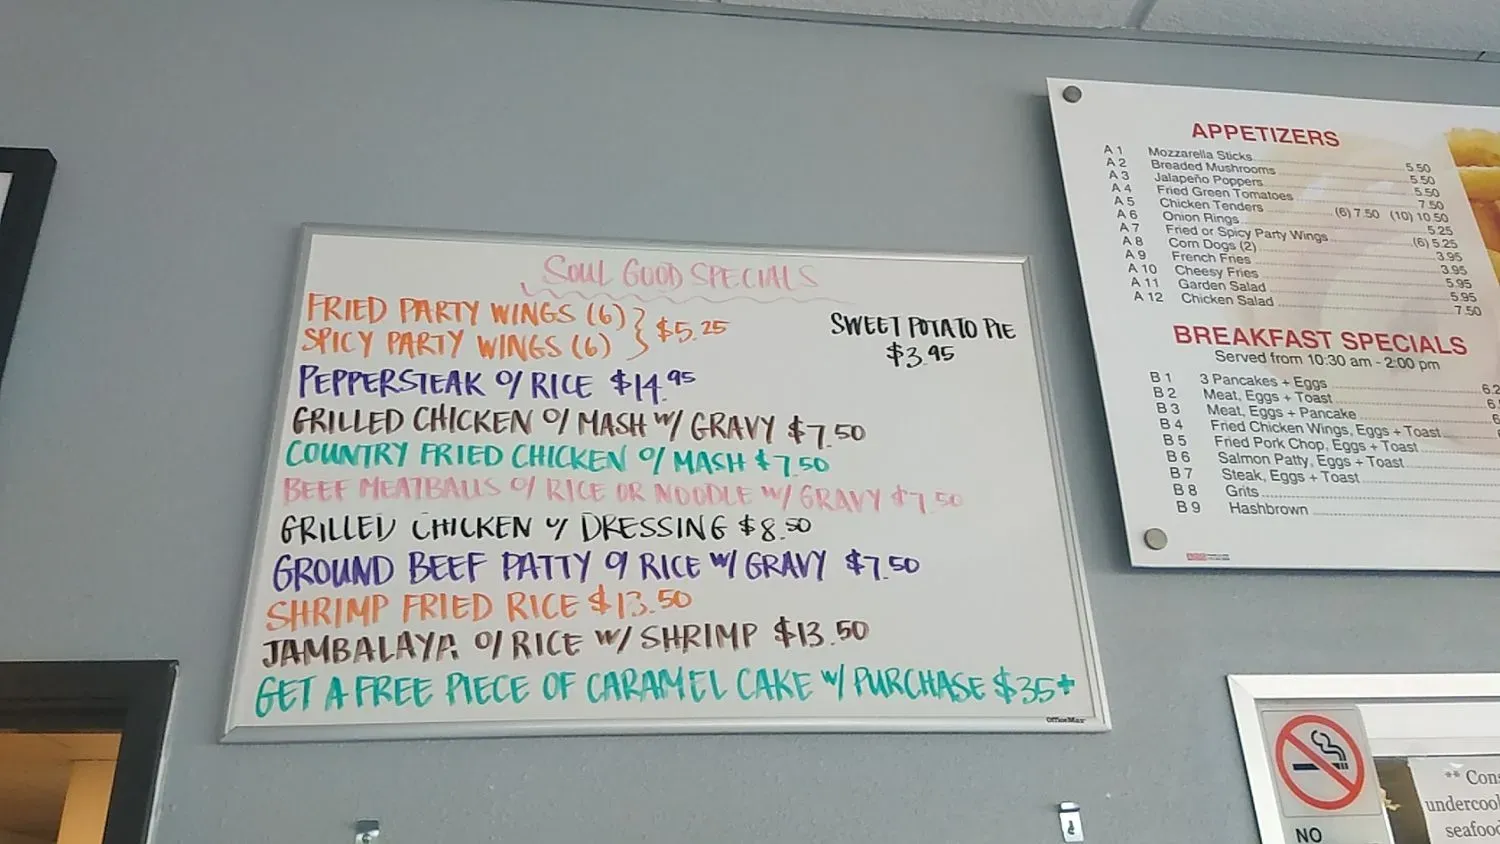 SOUL GOOD SPECIALS
FRIED PARTY WINGS (6)
SPICY PARTY WINGS (6) } $5.25
SWEET POTATO PIE
$3.95
PEPPERSTEAK O/ RICE $14.95
GRILLED CHICKEN O/ MASH W/ GRAVY $7.50
COUNTRY FRIED CHICKEN O/ MASH $7.50
BEEF MEATBALLS O/ RICE OR NOODLE W/ GRAVY $7.50
GRILLED CHICKEN W/ DRESSING $8.50
GROUND BEEF PATTY O/ RICE W/ GRAVY $7.50
SHRIMP FRIED RICE $13.50
JAMBALAYA O/ RICE W/ SHRIMP $13.50
GET A FREE PIECE OF CARAMEL CAKE W/ PURCHASE $35+
OfficeMax
APPETIZERS
A 1 Mozzarella Sticks 5.50
A 2 Breaded Mushrooms 5.50
A 3 Jalapeño Poppers 5.50
A 4 Fried Green Tomatoes 7.50
A 5 Chicken Tenders (6) 7.50 (10) 10.50
A 6 Onion Rings 5.25
A 7 Fried or Spicy Party Wings (6) 5.25
A 8 Corn Dogs (2) 3.95
A 9 French Fries 3.95
A 10 Cheesy Fries 5.95
A 11 Garden Salad 5.95
A 12 Chicken Salad 7.50
BREAKFAST SPECIALS
Served from 10:30 am - 2:00 pm
B 1 3 Pancakes + Eggs
B 2 Meat, Eggs + Toast
B 3 Meat, Eggs + Pancake
B 4 Fried Chicken Wings, Eggs + Toast
B 5 Fried Pork Chop, Eggs + Toast
B 6 Salmon Patty, Eggs + Toast
B 7 Steak, Eggs + Toast
B 8 Grits
B 9 Hashbrown
NO
** Cons
undercoo
seafood